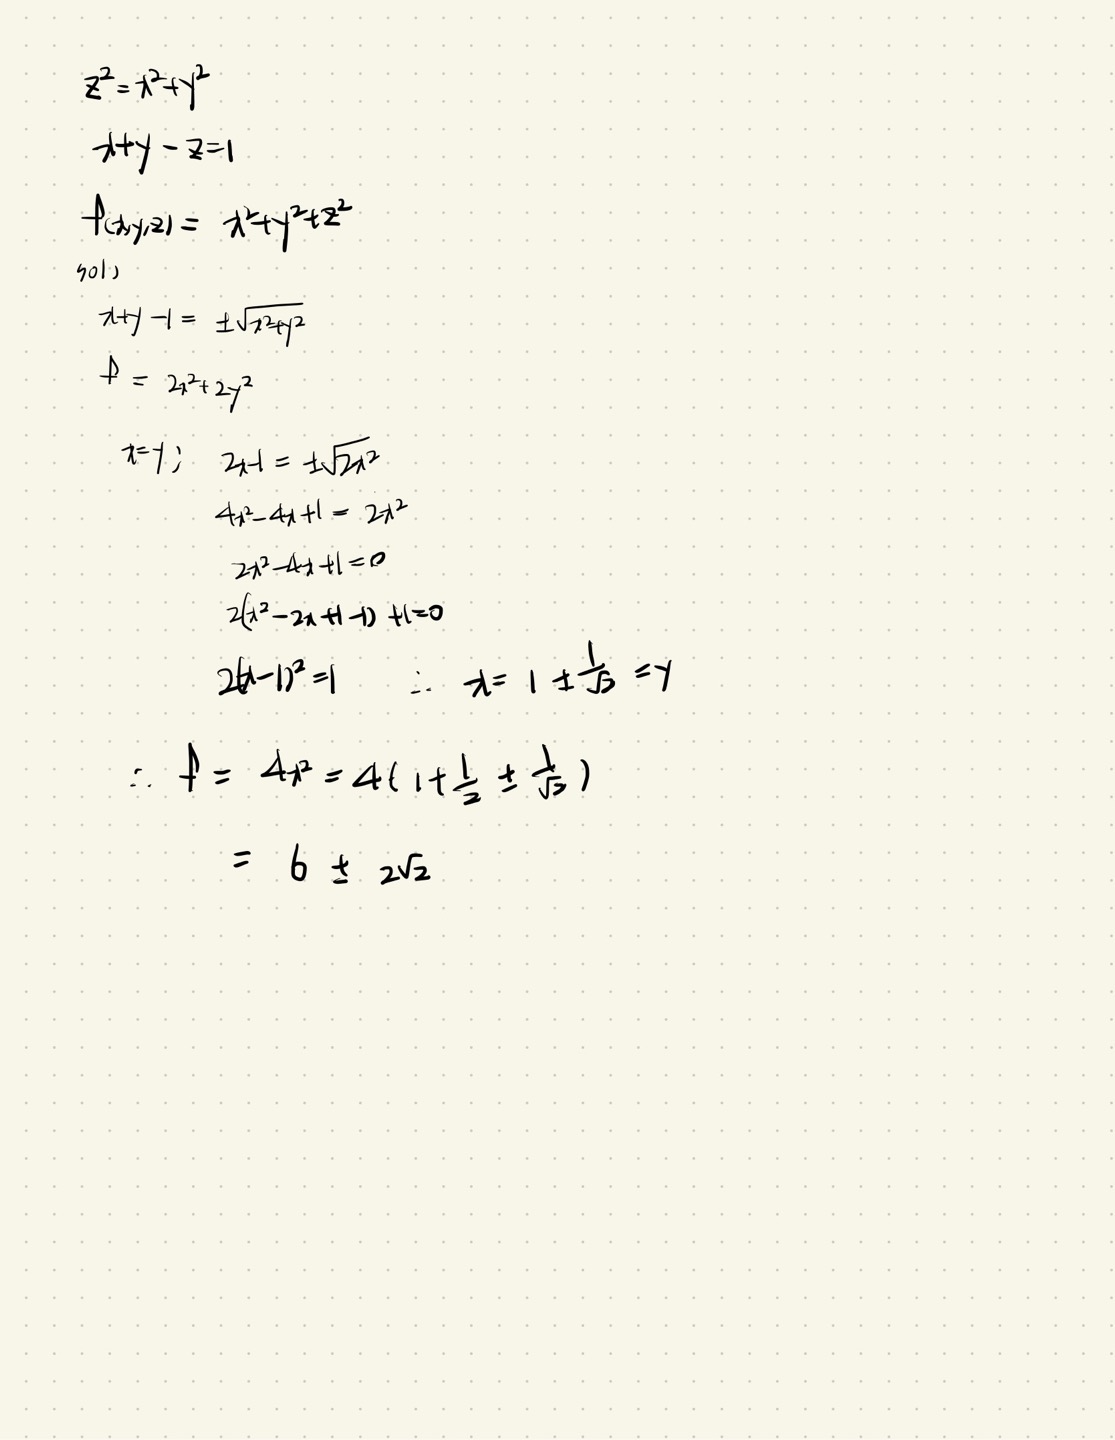 z² = x² + y²
x+y - z = 1
f(x,y,z) = x²+y²+z²
sol)
x+y -1 = ±√x²+y²
f = 2x²+2y²
x=y; 2x-1 = ±√2x²
4x²-4x+1 = 2x²
2x²-4x+1=0
2(x²-2x+1-1) +1=0
2(x-1)²=1 ∴ x= 1 ± 1/√2 = y
∴ f = 4x² = 4(1+1/2 ± 1/√2)
= 6 ± 2√2